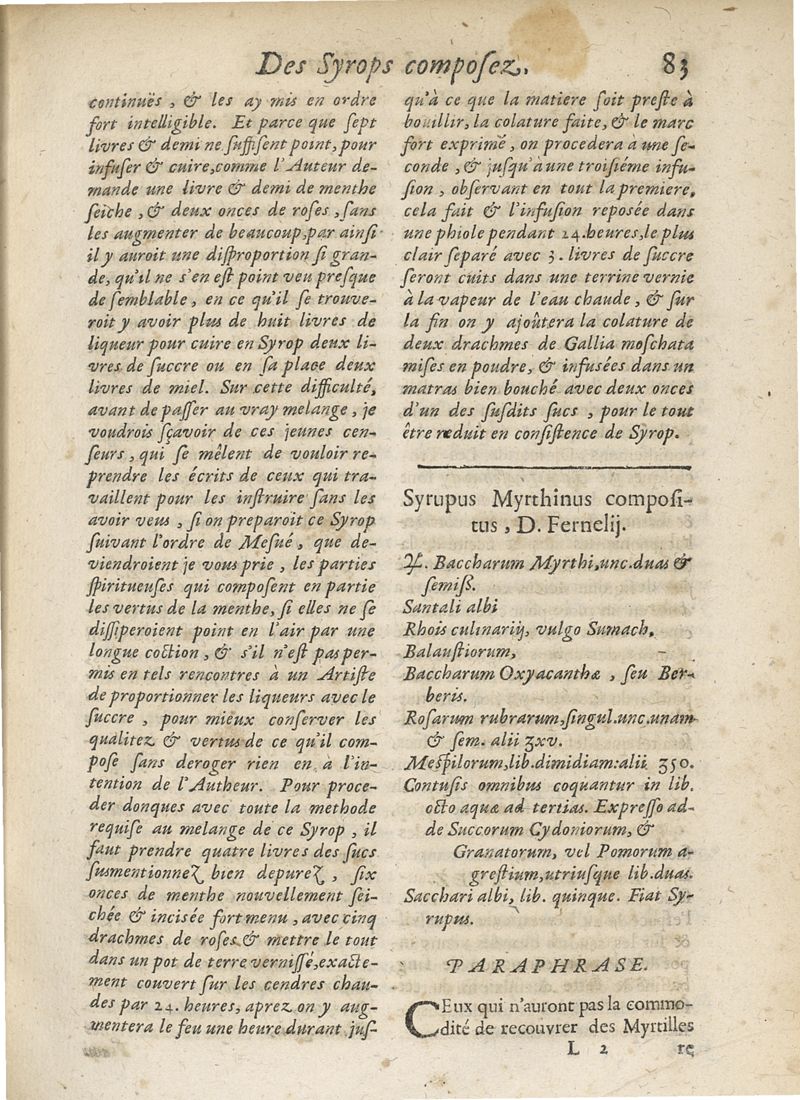 Des Syrops composez.
83
continuës, & les ay mis en ordre
fort intelligible. Et parce que sept
livres & demi ne suffisent point, pour
infuser & cuire, comme l'Auteur de-
mande une livre & demi de menthe
seiche, & deux onces de roses, sans
les augmenter de beaucoup, par ainsi
il y auroit une disproportion si gran-
de, qu'il ne s'en est point veu presque
de semblable, en ce qu'il se trouve-
roit y avoir plus de huit livres de
liqueur pour cuire en Syrop deux li-
vres de succre ou en sa place deux
livres de miel. Sur cette difficulté,
avant de passer au vray melange, je
voudrois sçavoir de ces jeunes cen-
seurs, qui se mêlent de vouloir re-
prendre les écrits de ceux qui tra-
vaillent pour les instruire sans les
avoir veus, si on preparoit ce Syrop
suivant l'ordre de Mesué, que de-
viendroient je vous prie, les parties
spiritueuses qui composent en partie
les vertus de la menthe, si elles ne se
dissiperoient point en l'air par une
longue coction, & s'il n'est pas per-
mis en tels rencontres à un Artiste
de proportionner les liqueurs avec le
succre, pour mieux conserver les
qualitez & vertus de ce qu'il com-
pose sans deroger rien en à l'in-
tention de l'Autheur. Pour proce-
der donques avec toute la methode
requise au melange de ce Syrop, il
faut prendre quatre livres des sucs
susmentionnez bien depurez, six
onces de menthe nouvellement sei-
chée & incisée fort menu, avec cinq
drachmes de roses & mettre le tout
dans un pot de terre vernissé, exacte-
ment couvert sur les cendres chau-
des par 24. heures, aprez on y aug-
mentera le feu une heure durant jus-
qu'à ce que la matiere soit preste à
bouillir, la colature faite, & le marc
fort exprimé, on procedera à une se-
conde, & jusqu'à une troisiéme infu-
sion, observant en tout la premiere,
cela fait & l'infusion reposée dans
une phiole pendant 24. heures, le plus
clair separé avec 3. livres de succre
seront cuits dans une terrine vernie
à la vapeur de l'eau chaude, & sur
la fin on y ajoûtera la colature de
deux drachmes de Gallia moschata
mises en poudre, & infusées dans un
matras bien bouché avec deux onces
d'un des susdits sucs, pour le tout
être reduit en consistence de Syrop.
Syrupus Myrthinus composi-
tus, D. Fernelij.
♃. Baccharum Myrthi, unc. duas &
semiss.
Santali albi
Rhois culinarij, vulgo Sumach,
Balaustiorum,
Baccharum Oxyacanthæ, seu Ber-
beris.
Rosarum rubrarum, singul. unc. unam
& sem. alii ʒxv.
Mespilorum, lib. dimidiam: alii 350.
Contusis omnibus coquantur in lib.
octo aquæ ad tertias. Expresso ad-
de Succorum Cydoniorum, &
Granatorum, vel Pomorum a-
grestium, utriusque lib. duas.
Sacchari albi, lib. quinque. Fiat Sy-
rupus.
PARAPHRASE.
CEux qui n'auront pas la commo-
dité de recouvrer des Myrtilles
L 2
re